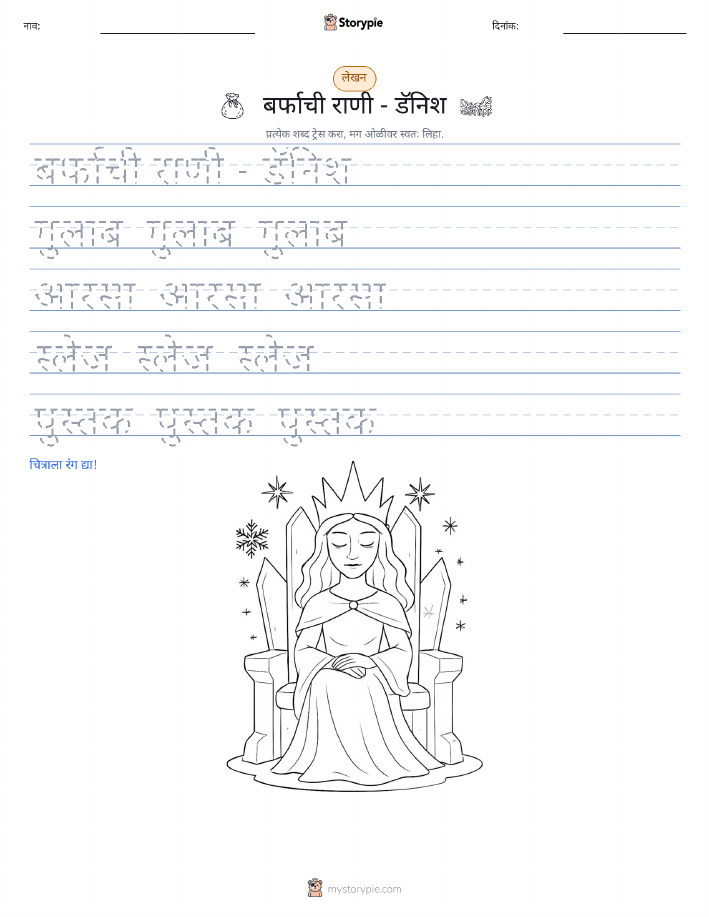 नाव:
Storypie
दिनांक:
लेखन
बर्फाची राणी - डॅनिश
प्रत्येक शब्द ट्रेस करा, मग ओळीवर स्वतः लिहा.
बर्फाची राणी - डॅनिश
गुलाब गुलाब गुलाब
आरसा आरसा आरसा
स्लेज स्लेज स्लेज
पुस्तक पुस्तक पुस्तक
चित्राला रंग द्या!
mystorypie.com